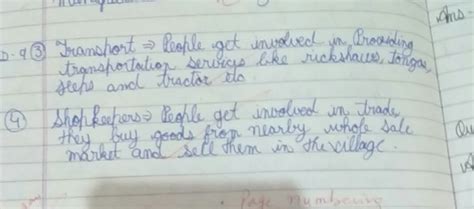 Ans
D.9 ③ Transport ⇒ People get involved in Providing
transportation services like rickshaws, Tongas,
jeeps and tractor etc
④ Shopkeepers ⇒ People get involved in trade,
they buy goods from nearby whole sale
market and sell them in the village.
Qu
Page numbering